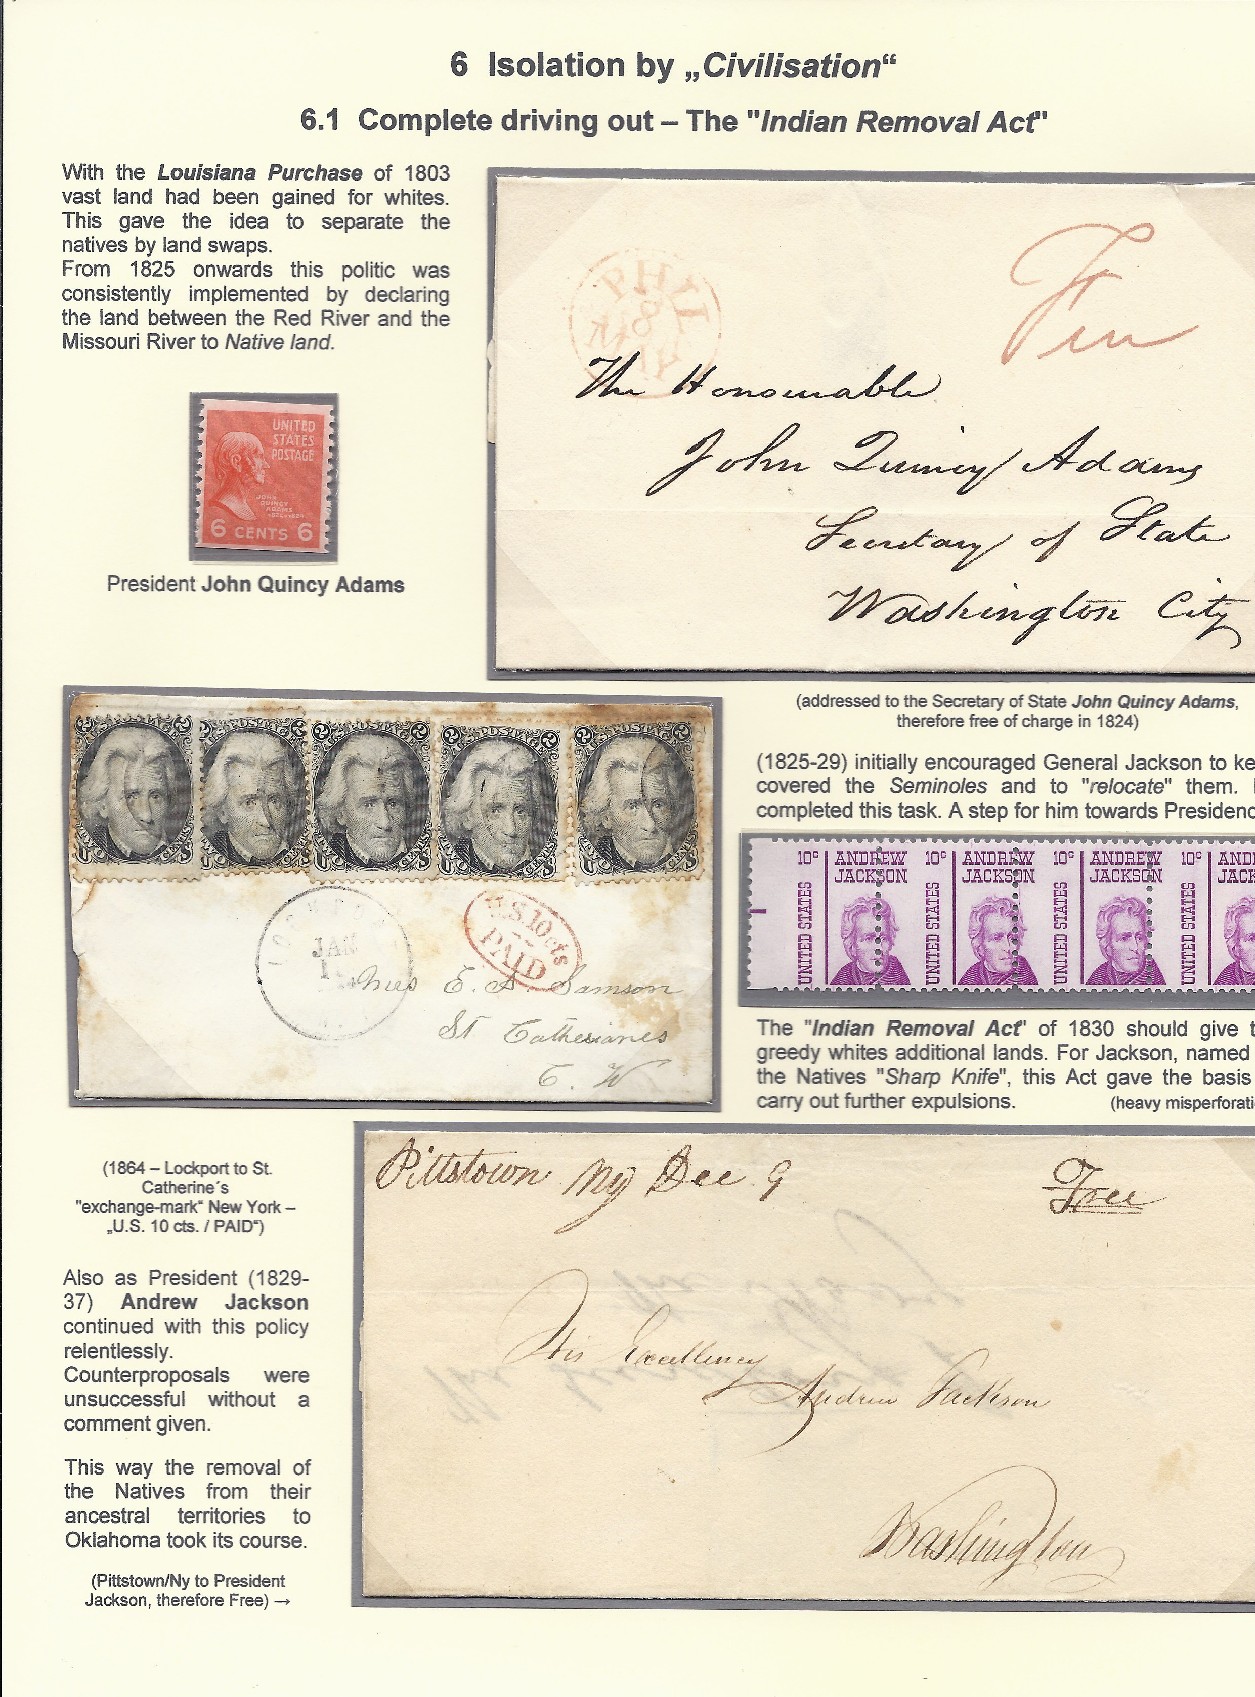 6 Isolation by „Civilisation“
6.1 Complete driving out – The "Indian Removal Act"
With the Louisiana Purchase of 1803
vast land had been gained for whites.
This gave the idea to separate the
natives by land swaps.
From 1825 onwards this politic was
consistently implemented by declaring
the land between the Red River and the
Missouri River to Native land.
UNITED
STATES
POSTAGE
JOHN
QUINCY
ADAMS
6 CENTS 6
President John Quincy Adams
PHIL
Free
The Honourable
John Quincy Adams
Secretary of State
Washington City
(addressed to the Secretary of State John Quincy Adams,
therefore free of charge in 1824)
(1825-29) initially encouraged General Jackson to ke
covered the Seminoles and to "relocate" them.
completed this task. A step for him towards Presidenc
10c ANDREW JACKSON UNITED STATES
10c ANDREW JACKSON UNITED STATES
10c ANDREW JACKSON UNITED STATES
10c AND JACK UNITED STATES
The "Indian Removal Act" of 1830 should give t
greedy whites additional lands. For Jackson, named
the Natives "Sharp Knife", this Act gave the basis
carry out further expulsions. (heavy misperforati
2 U.S. POSTAGE 2
JAN
U.S. 10 cts
PAID
E. A. Samson
St Catherines
C. W
(1864 – Lockport to St.
Catherine´s
"exchange-mark“ New York –
„U.S. 10 cts. / PAID“)
Also as President (1829-
37) Andrew Jackson
continued with this policy
relentlessly.
Counterproposals were
unsuccessful without a
comment given.
This way the removal of
the Natives from their
ancestral territories to
Oklahoma took its course.
(Pittstown/Ny to President
Jackson, therefore Free) →
Pittstown Ny Dec 9
Free
His Excellency
Andrew Jackson
Washington